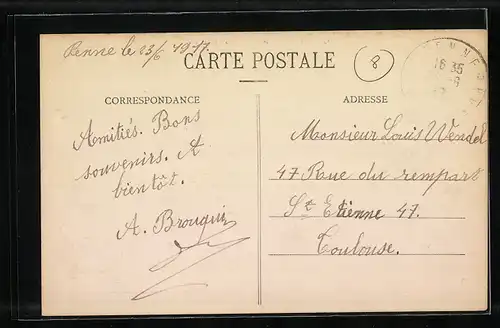 Penne le 23/6 1917
CARTE POSTALE
8
CORRESPONDANCE
ADRESSE
16 35
Amitiés. Bons
souvenirs. A
bientôt.
A. Brouqui
Monsieur Louis Wendel
47 Rue du rempart
St Etienne 47.
Toulouse.